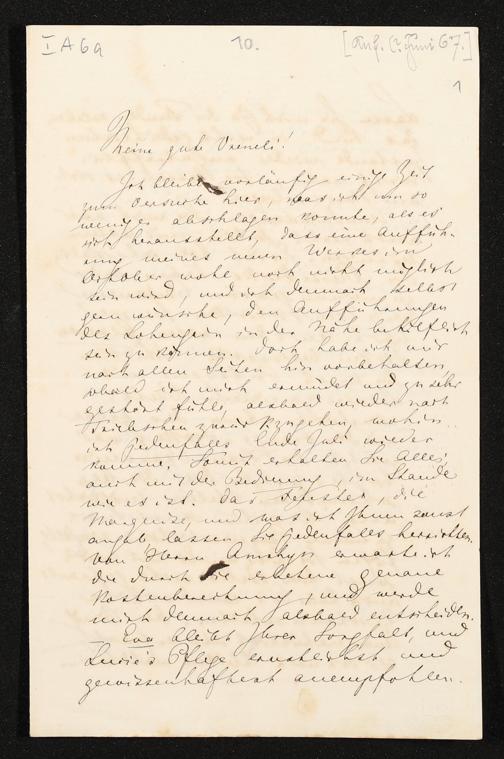 I A 6a 10. [Anf. (?) Juni 67.]
1
Meine gute Vreneli!
Ich bleibe vorläufig einige Zeit
zum Versuche hier, was ich um so
weniger abschlagen konnte, als es
sich herausstellt, dass eine Auffüh-
rung meines neuen Werkes im
October wohl noch nicht möglich
sein wird, und ich demnach selbst
gern wünsche, den Aufführungen
des Lohengrin in der Nähe behülflich
sein zu können. Doch habe ich mir
nach allen Seiten hin vorbehalten
sobald ich mich ermüdet und zu sehr
gestört fühle, alsbald wieder nach
Triebschen zurückzugehen, wohin
ich jedenfalls Ende Juli wieder
komme. Somit erhalten Sie Alles,
auch mit der Bedienung, im Stande
wie es ist. Das Fenster, die
Marquise, und was ich Ihnen sonst
angab lassen Sie jedenfalls herrichten.
Von Herrn Am Rhyn erwarte ich
die durch Sie erbetene genaue
Kostenberechnung, und werde
mich demnach alsbald entscheiden.
— Eva bleibt Ihrer Sorgfalt, und
Lusie's Pflege ernstlichst und
gewissenhaftest anempfohlen.